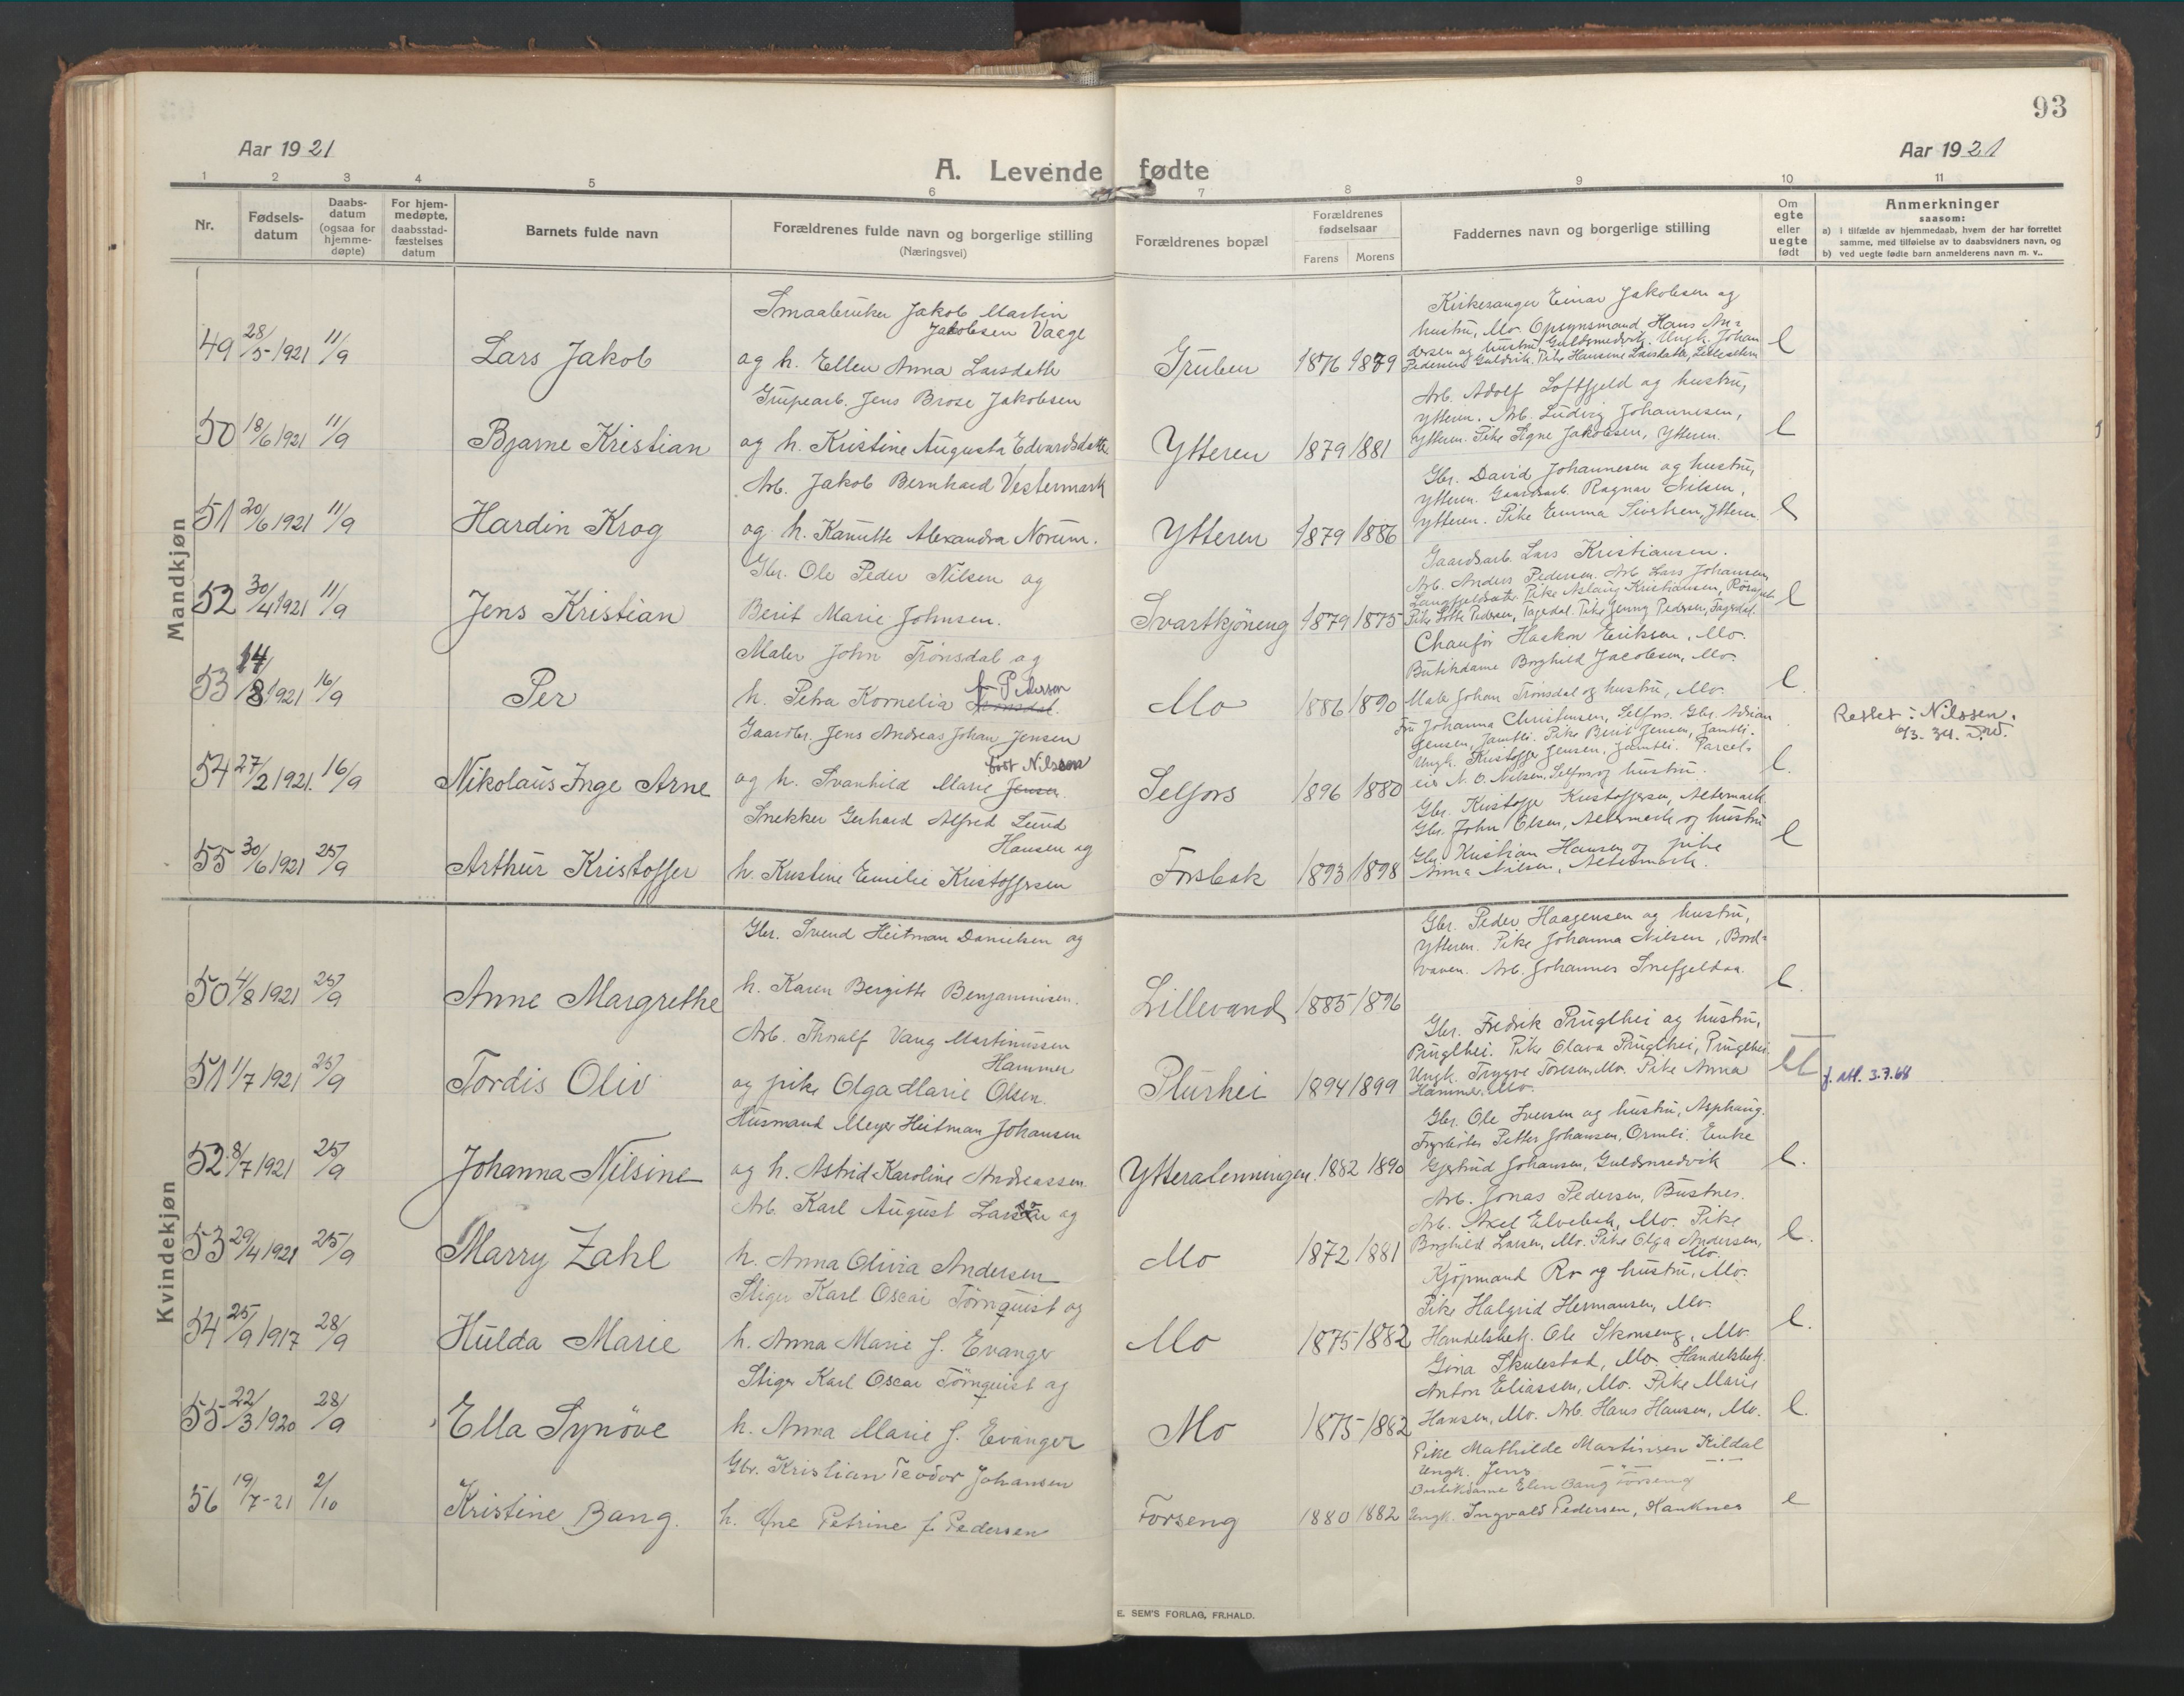 93
Aar 1921
Aar 1921
A. Levende fødte
1 2 3 4 5 6 7 8 9 10 11
Nr.
Fødsels-
datum
Daabs-
datum
(ogsaa for
hjemme-
døpte)
For hjem-
medøpte,
daabsstad-
fæstelses
datum
Barnets fulde navn
Forældrenes fulde navn og borgerlige stilling
(Næringsvei)
Forældrenes bopæl
Forældrenes
fødselsaar
Farens Morens
Faddernes navn og borgerlige stilling
Om
egte
eller
uegte
født
Anmerkninger
saasom:
a) i tilfælde av hjemmedaab, hvem der har forrettet
samme, med tilføielse av to daabsvidners navn, og
b) ved uegte fødte barn anmelderens navn m. v..
Mandkjøn
Smaabruker Jakob Martin
Jakobsen Vaage
49 28/5-1921 11/9 Lars Jakob og h. Ellen Anna Larsdatter Gruben 1876 1879
Kirkesanger Einar Jakobsen og
hustru, Mo. Opsynsmand Hans An-
dersen og hustru, Guldsmedvik. Ungk. Johan
Pedersen Guldvik. Pike Hansine Larsdatter, e
Grubearb. Jens Brose Jakobsen
50 18/6 1921 11/9 Bjarne Kristian og h. Kristine Augusta Edvardsdatter Ytteren 1879 1881
Arb. Adolf Loftfjeld og hustru,
Ytteren. Arb. Ludvig Johannesen,
Ytteren. Pike Signe Jakobsen, Ytteren. e
Arb. Jakob Bernhard Vestermark
51 20/6 1921 11/9 Hardin Krog og h. Kanutte Alexandra Norum. Ytteren 1879 1886
Gbr. David Johannesen og hustru,
Ytteren. Gaardsarb. Ragnar Nilsen,
Ytteren. Pike Emma Sivertsen, Ytteren. e
Gbr. Ole Peder Nilsen og
52 30/4 1921 11/9 Jens Kristian Berit Marie Johnsen. Svartkjöneng 1879 1875
Gaardsarb. Lars Kristiansen.
Arb. Anders Pedersen. Arb. Lars Johansen,
Langfjeldsæter. Pike Aslaug Kristiansen,
Pike Lotte Pedersen, Fagerdal. Pike Jenny Pedersen, Fagerdal. e
Maler John Trönsdal og
53 14/8 1921 16/9 Per h. Petra Kornelia f. Pedersen Mo 1886 1890
Chaufør Haakon Eriksen, Mo.
Butikdame Borghild Jacobsen, Mo.
Maler Johan Trönsdal og hustru, Mo. e.
Gaardbr. Jens Andreas Johan Jensen
født Nilssen
54 27/2 1921. 16/9 Nikolaus Inge Arne og h. Svanhild Marie Jensen. Selfors 1896 1880
Fru Johanna Christensen, Selfors. Gbr. Adrian
Jensen, Jamtli. Pike Berit Jensen, Jamtli.
Ungk. Kristoffer Jensen, Jamtli. Parcel-
eier N. O. Nilsen, Selfors og hustru. e.
Rettet: Nilssen.
6/3. 34.
Snekker Gerhard Alfred Lund
Hansen og
55 30/6 1921 25/9 Arthur Kristoffer h. Kristine Emilie Kristoffersen Forsbak 1893 1898
Gbr. Kristoffer Kristoffersen, Altermark
Gbr. John Olsen, Altermark og hustru
Gbr. Kristian Hansen og pike
Anna Nilsen, Altermark. e
Kvindekjøn
Gbr. Svend Heitman Danielsen og
50 4/8 1921 25/9 Anne Margrethe h. Karen Bergitte Benjaminsen. Lillevand 1885 1896
Gbr. Peder Haagensen og hustru,
Ytteren. Pike Johanna Nilsen, Bord-
vaven. Arb. Johannes Snefjeldaa. e.
Arb. Thoralf Vang Martinussen
Hammer
51 1/7 1921 25/9 Tordis Oliv og pike Olga Marie Olsen. Plurhei 1894 1899
Gbr. Fredrik Pruglhei og hustru,
Pruglhei. Pike Olava Pruglhei, Pruglhei.
Ungk. Trygve Toresen, Mo. Pike Anna
Hammer, Mo.
f. att. 3.7.68
Husmand Meyer Heitman Johansen
52. 8/7 1921 25/9 Johanna Nilsine og h. Astrid Karoline Andreassen. Ytteralenningen. 1882 1890
Gbr. Ole Iversen og hustru, Asphaug.
Petter Johansen, Ormli. Enke
Gjertrud Johansen, Guldsmedvik e.
Arb. Karl August Larsen og
53 29/4 1921 25/9 Marry Zahl h. Anna Olivia Andersen Mo 1872 1881
Arb. Jonas Pedersen, Bustnes.
Arb. Axel Elvebak, Mo. Pike
Borghild Larsen, Mo. Pike Olga Andersen,
Mo. e.
Stiger Karl Oscar Törnquist og
54 25/9 1917 28/9 Hulda Marie h. Anna Marie f. Evanger Mo 1875 1882
Kjøpmand Ro og hustru, Mo.
Pike Halgrid Hermansen, Mo.
Handelsbetj. Ole Skonseng, Mo. e.
Stiger Karl Oscar Törnquist og
55 22/3 1920 28/9 Ella Synöve h. Anna Marie f. Evanger Mo 1875 1882
Gina Skulestad, Mo. Handelsbetj.
Anton Eliassen, Mo. Pike Marie
Hansen, Mo. Arb. Hans Hansen, Mo. e.
Gbr. Kristian Teodor Johansen
56 19/7-21 2/10 Kristine Bang. h. Ane Petrine f. Pedersen Forseng 1880 1882
Pike Mathilde Martinsen Kildal
Ungk. Jens
Butikdame Elen Bang Forseng
Ungk. Ingvald Pedersen, Hauknes e
E. SEM'S FORLAG, FR.HALD.